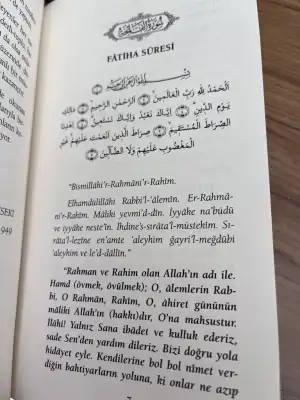 سورة الفاتحة
FÂTİHA SÛRESİ
بِسْمِ اللهِ الرَّحْمٰنِ الرَّحِيمِ
اَلْحَمْدُ لِلّٰهِ رَبِّ الْعَالَمِينَ الرَّحْمٰنِ الرَّحِيمِ مَالِكِ
يَوْمِ الدِّينِ اِيَّاكَ نَعْبُدُ وَاِيَّاكَ نَسْتَعِينُ اِهْدِنَا
الصِّرَاطَ الْمُسْتَقِيمَ صِرَاطَ الَّذِينَ اَنْعَمْتَ عَلَيْهِمْ غَيْرِ
الْمَغْضُوبِ عَلَيْهِمْ وَلَا الضَّالِّينَ
"Bismillâhi'r-Rahmâni'r-Rahîm.
Elhamdülillâhi Rabbi'l-'âlemîn. Er-Rahmâ-
ni'r-Rahîm. Mâliki yevmi'd-dîn. İyyâke na'büdü
ve iyyâke neste'în. İhdine's-sırâta'l-müstekîm. Sı-
râta'l-lezîne en'amte 'aleyhim ğayri'l-meğdûbi
'aleyhim ve le'd-dâllîn."
"Rahman ve Rahim olan Allah'ın adı ile.
Hamd (övmek, övülmek); O, âlemlerin Rab-
bi, O Rahmân, Rahîm, O, âhiret gününün
mâliki Allah'ın (hakkıdır), O'na mahsustur.
İlâhî! Yalnız Sana ibadet ve kulluk ederiz,
yalnız Sen'den yardım dileriz. Bizi doğru yola
hidâyet eyle. Kendilerine bol bol nîmet ver-
diğin bahtiyarların yoluna, ki onlar ne azıp
7